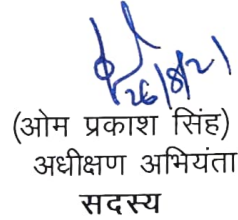 26/8/21
(ओम प्रकाश सिंह)
अधीक्षण अभियंता
सदस्य